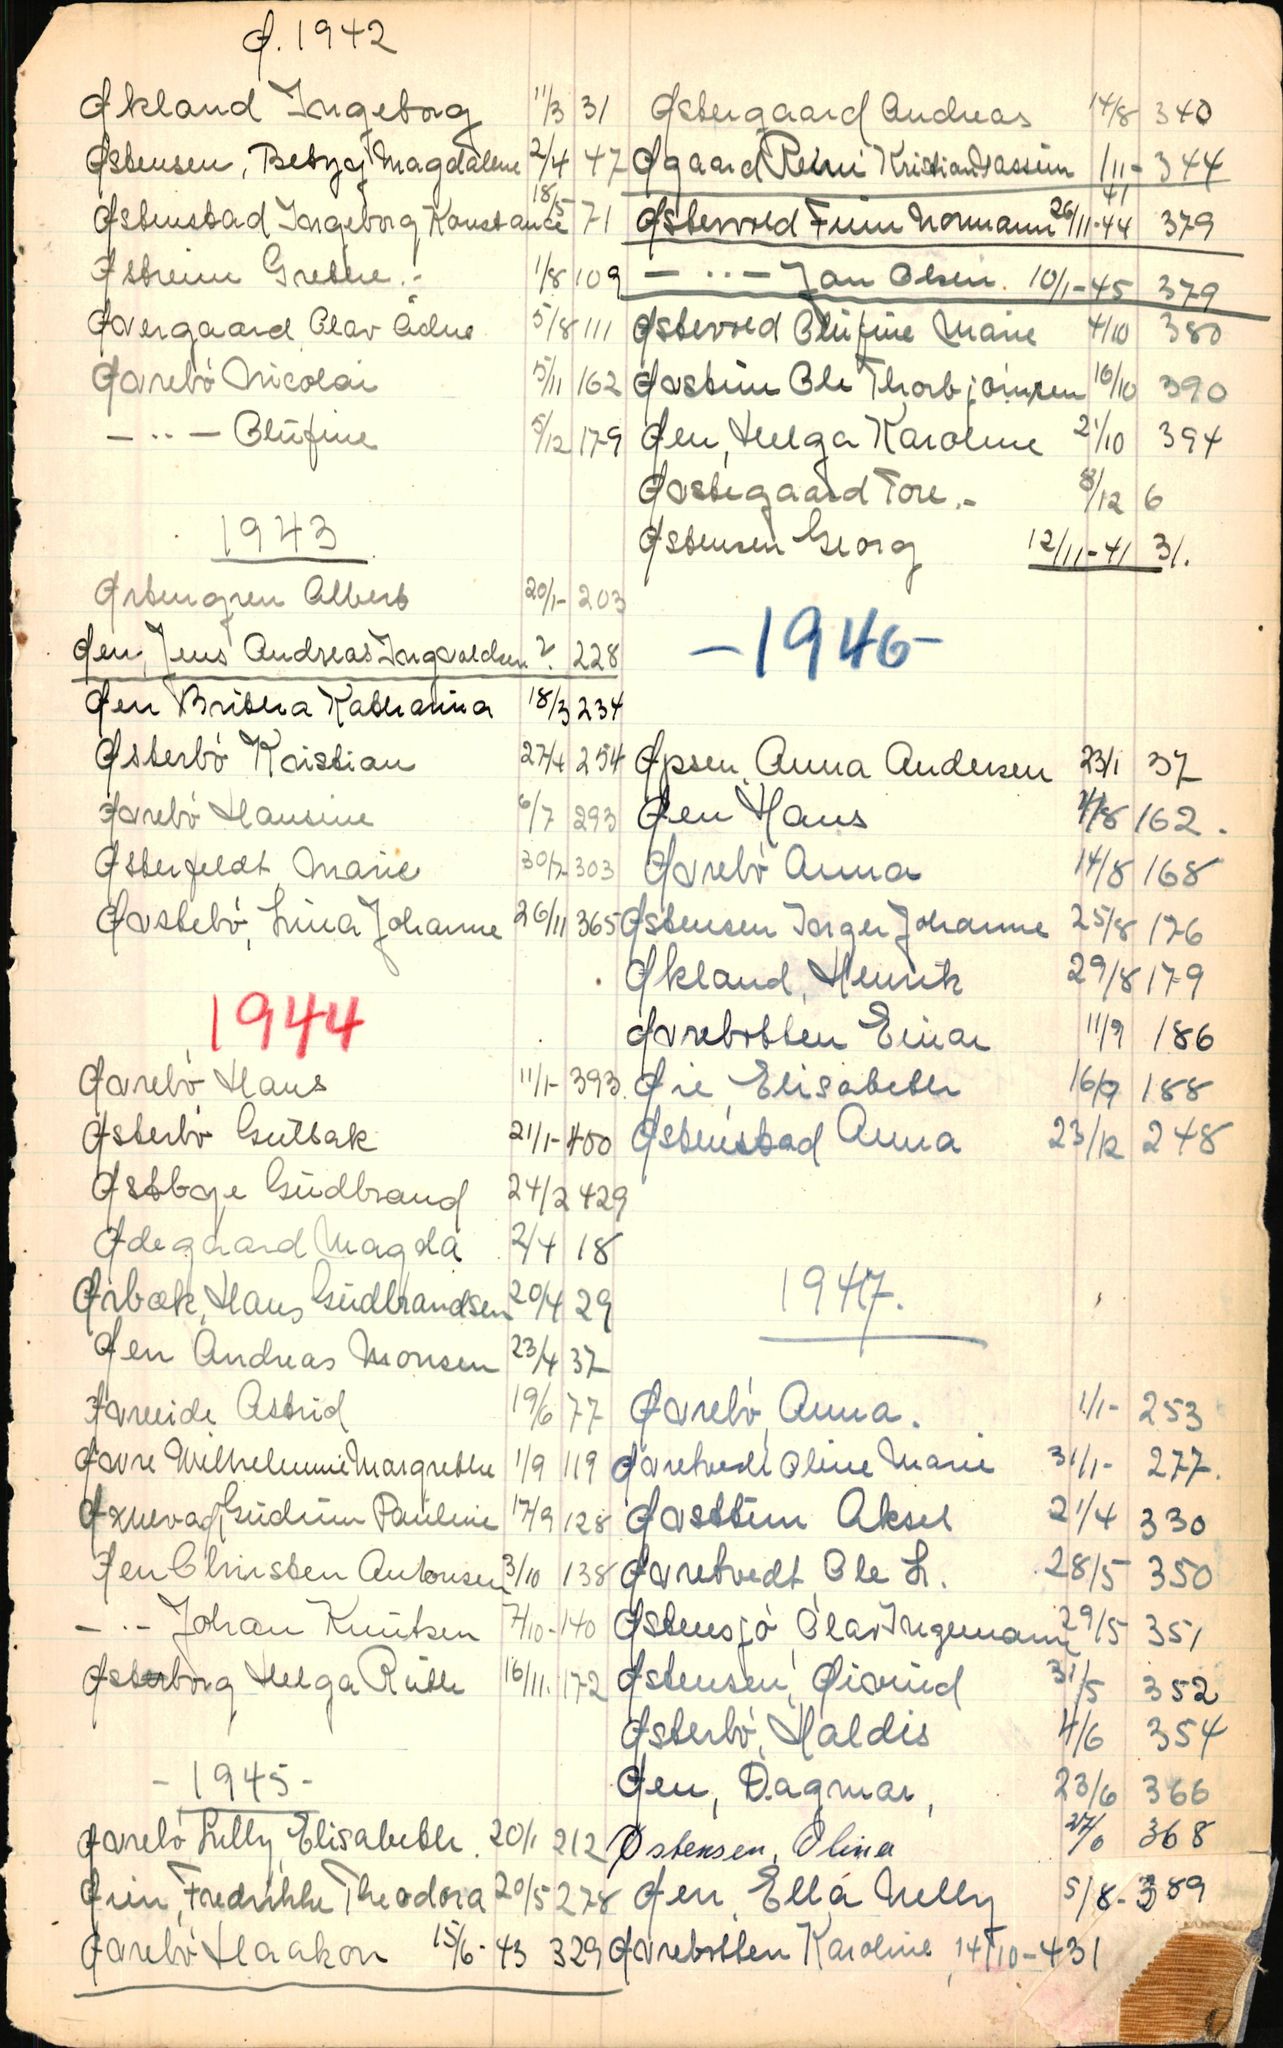 Ø. 1942
Økland Ingeborg 11/3 31
Østensen, Betzy Magdalene 2/4 47
Østensbad Ingeborg Konstance 18/5 71
Østreim Grethe.- 1/8 109
Øvergaard Olav Ådne 5/8 111
Øvrebö Nicolai 5/11 162
— .. — Olufine 5/12 179
1943
Østengren Albert 20/1- 203
Øen, Jens Andreas Ingvaldsen ?. 228
Øen Britha Katharina 18/3 234
Østerbö Kristian 27/4 254
Øvrebö Hansine 6/7 293
Østerfeldt Marie 30/7 303
Øvstebö, Lina Johanne 26/11 365
1944
Øvrebö Hans 11/1- 393
Østerbö Guttak 21/1- 400
Østbye Gudbrand 24/2 429
Ødegaard Magda 2/4 18
Ørbæk, Hans Gudbrandsen 20/4 29
Øen Andreas Monsen 23/4 37
Øvreide Astrid 19/6 77
Øvre Wilhelmine Margrethe 1/9 119
Øxnevad, Gudrun Pauline 17/9 128
Øen Christen Antonsen 3/10 138
— .. — Johan Knutsen 7/10- 140
Østerborg Helga Ruth 16/11. 172
- 1945 -
Øvrebö Lilly Elisabeth. 20/1 212
Øien, Fredrikke Theodora 20/5 278
Øvrebö Haakon 15/6- 43 329
Østergaard Andreas 14/8 340
Øgaard Reini Kristian 1/11-41 344
Østervold Finn Normann 26/11-44 379
— .. — Jan Olsen. 10/1-45 379
Østervold Olufine Marie 4/10 380
Øvstein Ole Thorbjörnsen 16/10 390
Øen, Helga Karoline 21/10 394
Øvstegaard Tore.- 8/12 6
Østensen Georg 12/11-41 31.
- 1946 -
Øpsen, Anna Andersen 23/1 37
Øen Hans 7/8 162.
Øvrebö Anna 14/8 168
Østensen Inger Johanne 25/8 176
Økland, Henrik 29/8 179
Øvrebotten Einar 11/9 186
Øie, Elisabeth 16/9 188
Østensbad Anna 23/12 248
1947.
Øvrebö, Anna. 1/1- 253
Øvretvedt Oline Marie 31/1- 277.
Øvsttun Aksel 21/4 330
Øvretvedt Ole L. 28/5 350
Østensjö, Olav Ingemann 29/5 351
Østensen, Øivind 31/5 352
Østerbö, Haldis 4/6 354
Øen, Dagmar, 23/6 366
Østensen, Olina 27/6 368
Øen, Ella Nelly 5/8- 389
Øvrebotten Karoline, 14/10- 431